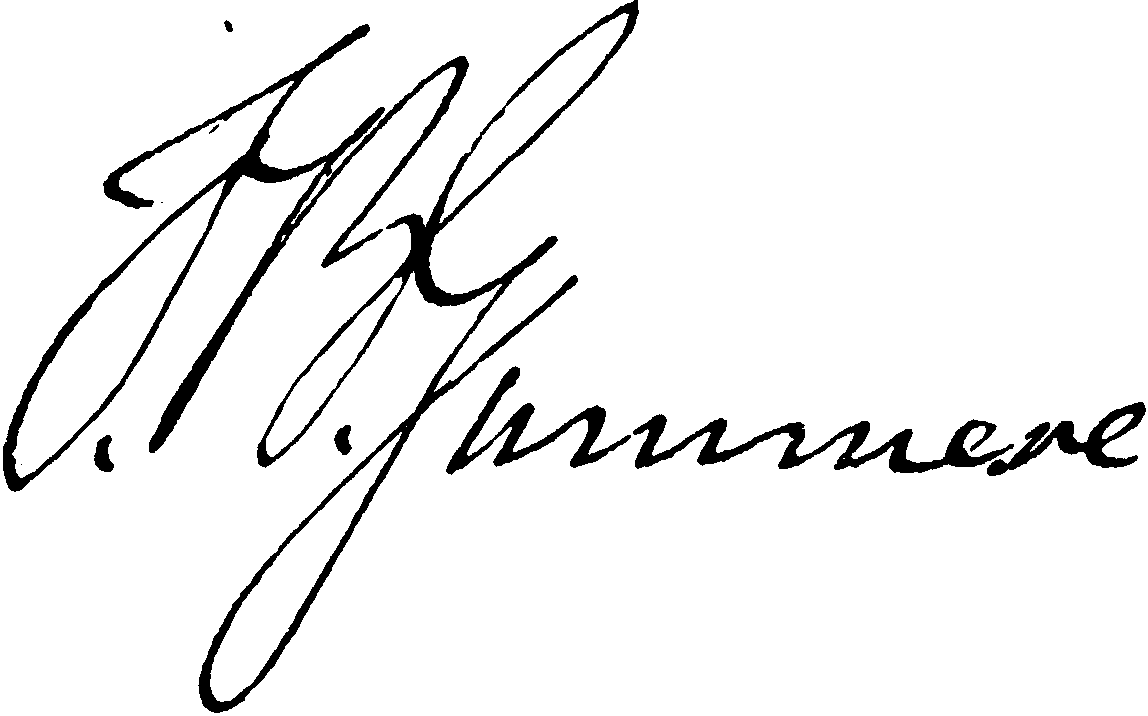 F. B. Gummere